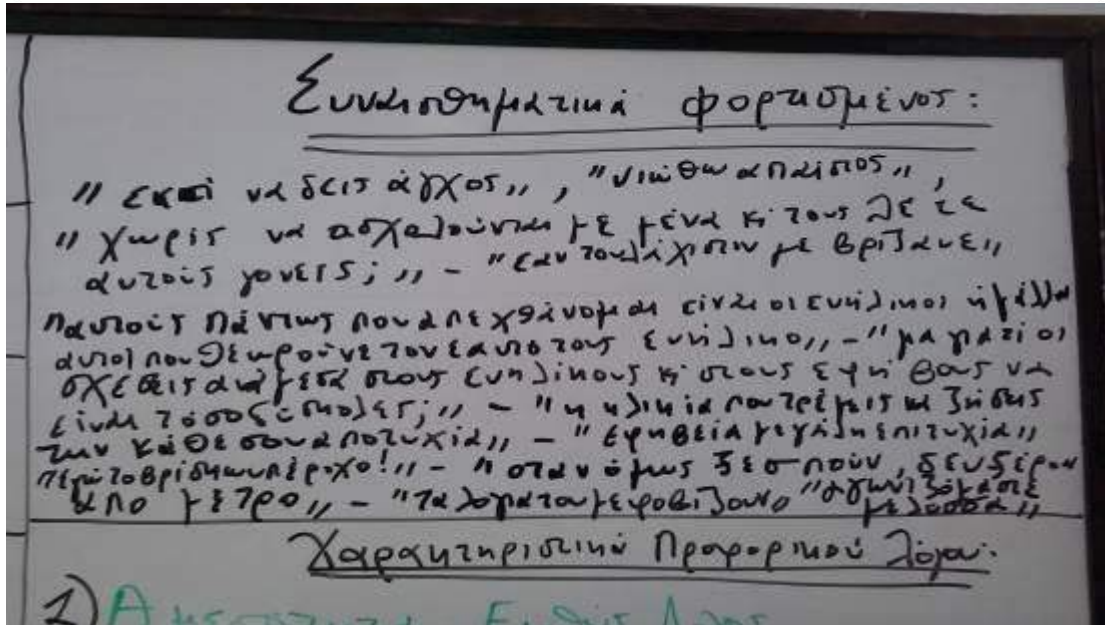 Συναισθηματικά φορτισμένος:
"εκεί να δεις άγχος", "νιώθω απαίσιος",
"χωρίς να ασχολούνται με μένα κ' τους λέτε
αυτούς γονείς;" - "εάν τουλάχιστον με βρίζανε"
"αυτούς πάντως που απεχθάνομαι είναι οι ενήλικοι ή μάλλον
αυτοί που θεωρούνε τον εαυτό τους ενήλικο" - "μα γιατί οι
σχέσεις ανάμεσα στους ενηλίκους κ' στους εφήβους να
είναι τόσο δύσκολες;" - "η ηλικία που τρέμεις να ζήσεις
την κάθε σου αποτυχία" - "εφηβεία μεγάλη επιτυχία"
το βρίσκω υπέροχο!" - "όταν όμως ξεσπούν, δεν ξέρουν
από μέτρο" - "τα λόγια του με φοβίζουν" "αγωνιζόμαστε
Χαρακτηριστικά Προφορικού λόγου:
1)